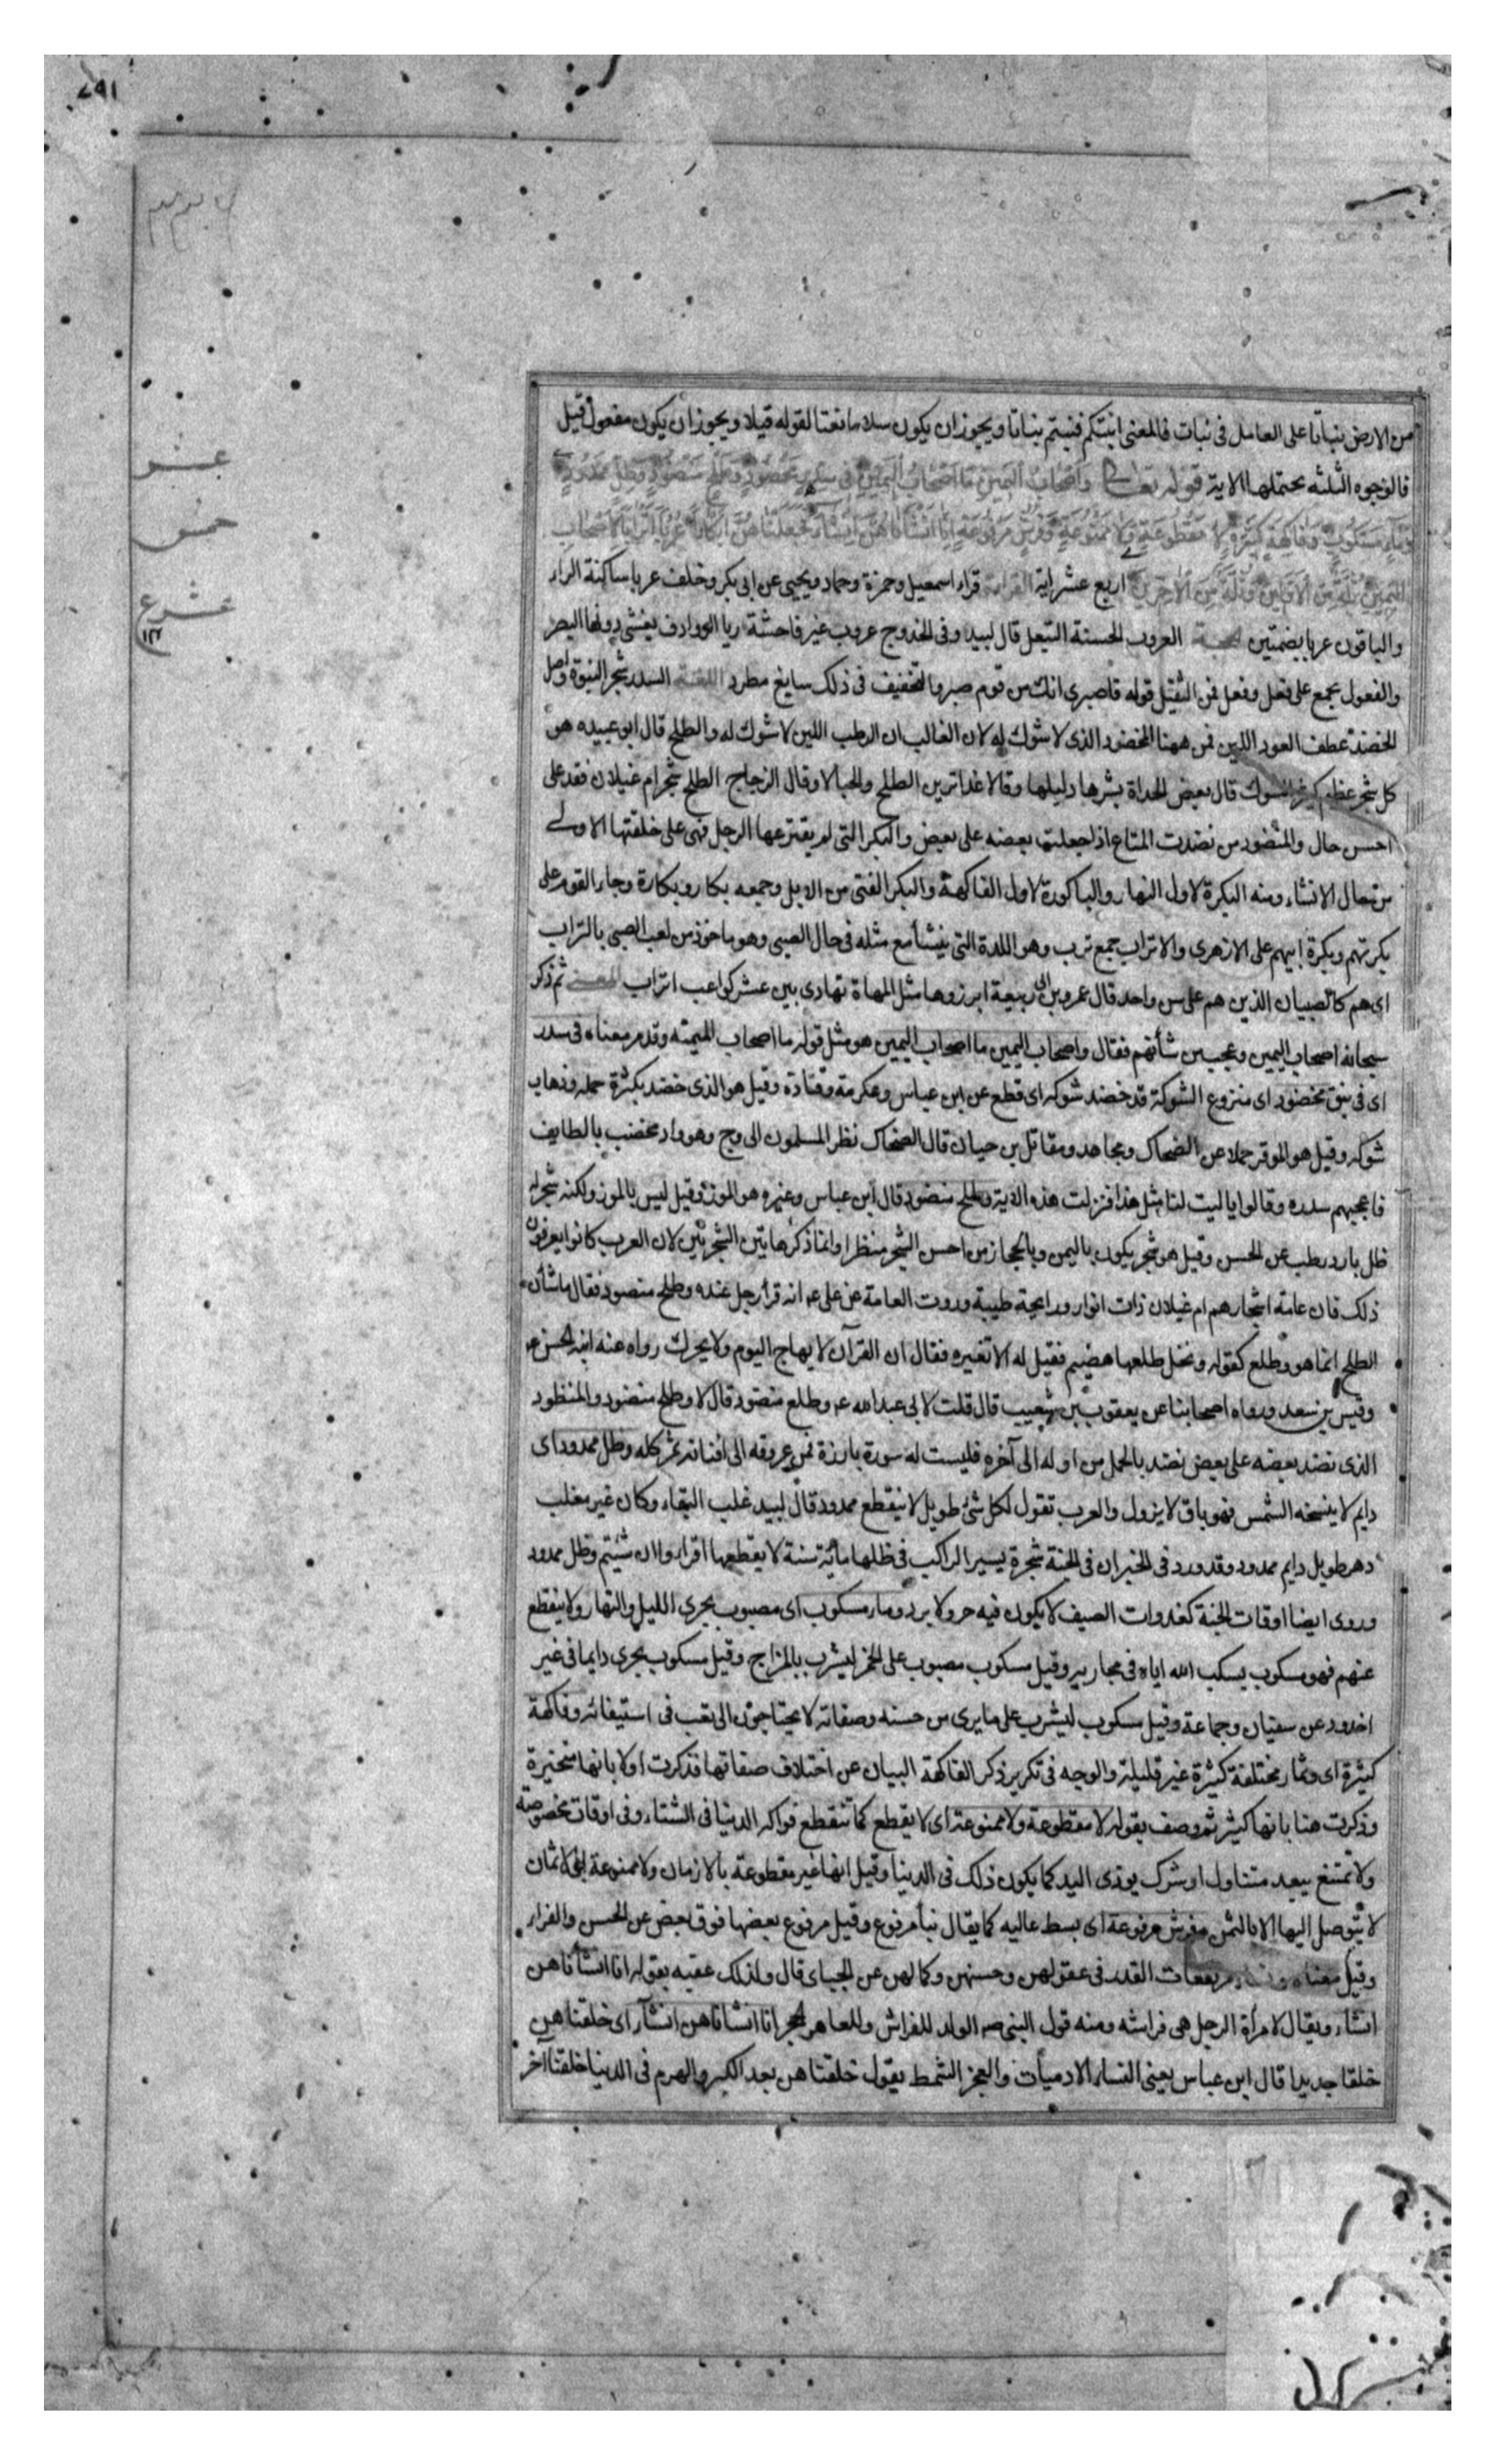 من الارض نباتا على العامل فى نبات فالمعنى انبتكم فنبتم نباتا ويجوز ان يكون سلاما نعتا لقوله قيلا ويجوز ان يكون مفعول قيل
فالوجوه الثلثه يحتملها الاية قوله تعالى واصحاب اليمين ما اصحاب اليمين فى سدر مخضود وطلح منضود وظل ممدود
وماء مسكوب وفاكهة كثيرة لا مقطوعة ولا ممنوعة وفرش مرفوعة انا انشأناهن انشاء فجعلناهن ابكارا عربا اترابا لاصحاب
اليمين ثلة من الاولين وثلة من الاخرين اربع عشر اية القراءة قراء اسمعيل وحمزة وحماد ويحيى عن ابى بكر وخلف عربا ساكنة الراء
والباقون عربا بضمتين الحجة العروب الحسنة التبعل قال لبيد وفى الحدوج عروب غير فاحشة ريا الروادف يغشى دونها البصر
والفعول يجمع على فعل وفعل فمن التثقيل قوله فاصبرى انك من قوم صبر والتخفيف فى ذلك سايغ مطرد اللغة السدر شجر النبوة واصل
الخضد عطف العود اللين فمن ههنا المخضود الذى لا شوك له لان الغالب ان الرطب اللين لا شوك له والطلح قال ابو عبيده هو
كل شجر عظم كثير الشوك قال بعض الحداة بشرها دليلها وقالا غدا ترين الطلح والحبالا وقال الزجاج الطلح شجر ام غيلان فقد على
احسن حال والمنضود من نضدت المتاع اذا جعلت بعضه على بعض والبكر التى لم يفترعها الرجل فهى على خلقتها الاولى
من حال الانشاء ومنه البكرة لاول النهار والباكورة لاول الفاكهة والبكر الفتى من الابل وجمعه بكار وبكارة وجاء القوم على
بكرتهم وبكرة ابيهم على الازهرى والاتراب جمع ترب وهو اللدة التى ينشأ مع مثله فى حال الصبى وهو ماخوذ من لعب الصبى بالتراب
اى هم كالصبيان الذين هم على سن واحد قال عمرو بن ابى ربيعة ابرزوها مثل المهاة تهادى بين عشر كواعب اتراب المعنى ثم ذكر
سبحانه اصحاب اليمين وعجب من شأنهم فقال واصحاب اليمين ما اصحاب اليمين هو مثل قوله ما اصحاب الميمنة وقد مر معناه فى سدر
اى فى نبق مخضود اى منزوع الشوكة قد خضد شوكه اى قطع عن ابن عباس وعكرمة وقتادة وقيل هو الذى خضد بكثرة حمله وذهاب
شوكه وقيل هو الموقر حملا عن الضحاك ومجاهد ومقاتل بن حيان قال الضحاك نظر المسلمون الى وج وهو واد مخضب بالطايف
فاعجبهم سدره وقالوا يا ليت لنا مثل هذا فنزلت هذه الاية وطلح منضود قال ابن عباس وغيره هو الموز وقيل ليس بالموز ولكنه شجر له
ظل بارد رطب عن الحسن وقيل هو شجر يكون باليمن وبالحجاز من احسن الشجر منظرا وانما ذكر هاتين الشجرتين لان العرب كانوا يعرفون
ذلك فان عامة اشجارهم ام غيلان ذات انوار ورايحة طيبة وروت العامة عن على ع انه قرأ رجل عنده وطلح منضود فقال ما شأن
الطلح انما هو وطلع كقوله ونخل طلعها هضيم فقيل له الا تغيره فقال ان القرآن لا يهاج اليوم ولا يحرك رواه عنه ابنه الحسن ع
وقيس بن سعد ورواه اصحابنا عن يعقوب بن شعيب قال قلت لابى عبد الله ع وطلع منضود قال لا وطلح منضود والمنظود
الذى نضد بعضه على بعض نضد بالحمل من اوله الى آخره فليست له سورة بارزة فمن عروقه الى افنانه ثمر كله وظل ممدود اى
دايم لا ينسخه الشمس فهو باق لا يزول والعرب تقول لكل شئ طويل لا ينقطع ممدود قال لبيد غلب البقاء وكان غير مغلب
دهر طويل دايم ممدود وقد ورد فى الخبر ان فى الجنة شجرة يسير الراكب فى ظلها مأية سنة لا يقطعها اقراوا ان شئتم وظل ممدود
وروى ايضا اوقات الجنة كغدوات الصيف لا يكون فيه حر ولا برد وماء مسكوب اى مصبوب يجرى الليل والنهار ولا ينقطع
عنهم فهو مسكوب يسكب الله اياه فى مجاريه وقيل مسكوب مصبوب على الخمر ليشرب بالمزاج وقيل مسكوب يجرى دايما فى غير
اخدود عن سفيان وجماعة وقيل مسكوب ليشرب على ما يرى من حسنه وصفائه لا يحتاجون الى تعب فى استيفائه وفاكهة
كثيرة اى وثمار مختلفة كثيرة غير قليلة والوجه فى تكرير ذكر الفاكهة البيان عن اختلاف صفاتها فذكرت اولا بانها متخيرة
وذكرت هنا بانها كثير ثم وصف بقوله لا مقطوعة ولا ممنوعة اى لا يقطع كما تنقطع فواكه الدنيا فى الشتاء وفى اوقات مخصوصة
ولا تمتنع ببعد متناول او شرك يوذى اليد كما يكون ذلك فى الدنيا وقيل انها غير مقطوعة بالازمان ولا ممنوعة بالاثمان
لا يتوصل اليها الا بالثمن وفرش مرفوعة اى بسط عاليه كما يقال بنأ مرفوع وقيل مرفوع بعضها فوق بعض عن الحسن والفراء
وقيل معناه ونساء مرتفعات القدر فى عقولهن وحسنهن وكمالهن عن الجبائى قال ولذلك عقبه بقوله انا انشأناهن
انشاء ويقال لامرأة الرجل هى فراشه ومنه قول النبى ص الولد للفراش وللعاهر الحجر انا انشاناهن انشآء اى خلقناهن
خلقا جديدا قال ابن عباس يعنى النساء الادميات والعجز الشمط يقول خلقناهن بعد الكبر والهرم فى الدنيا خلقنا اخر